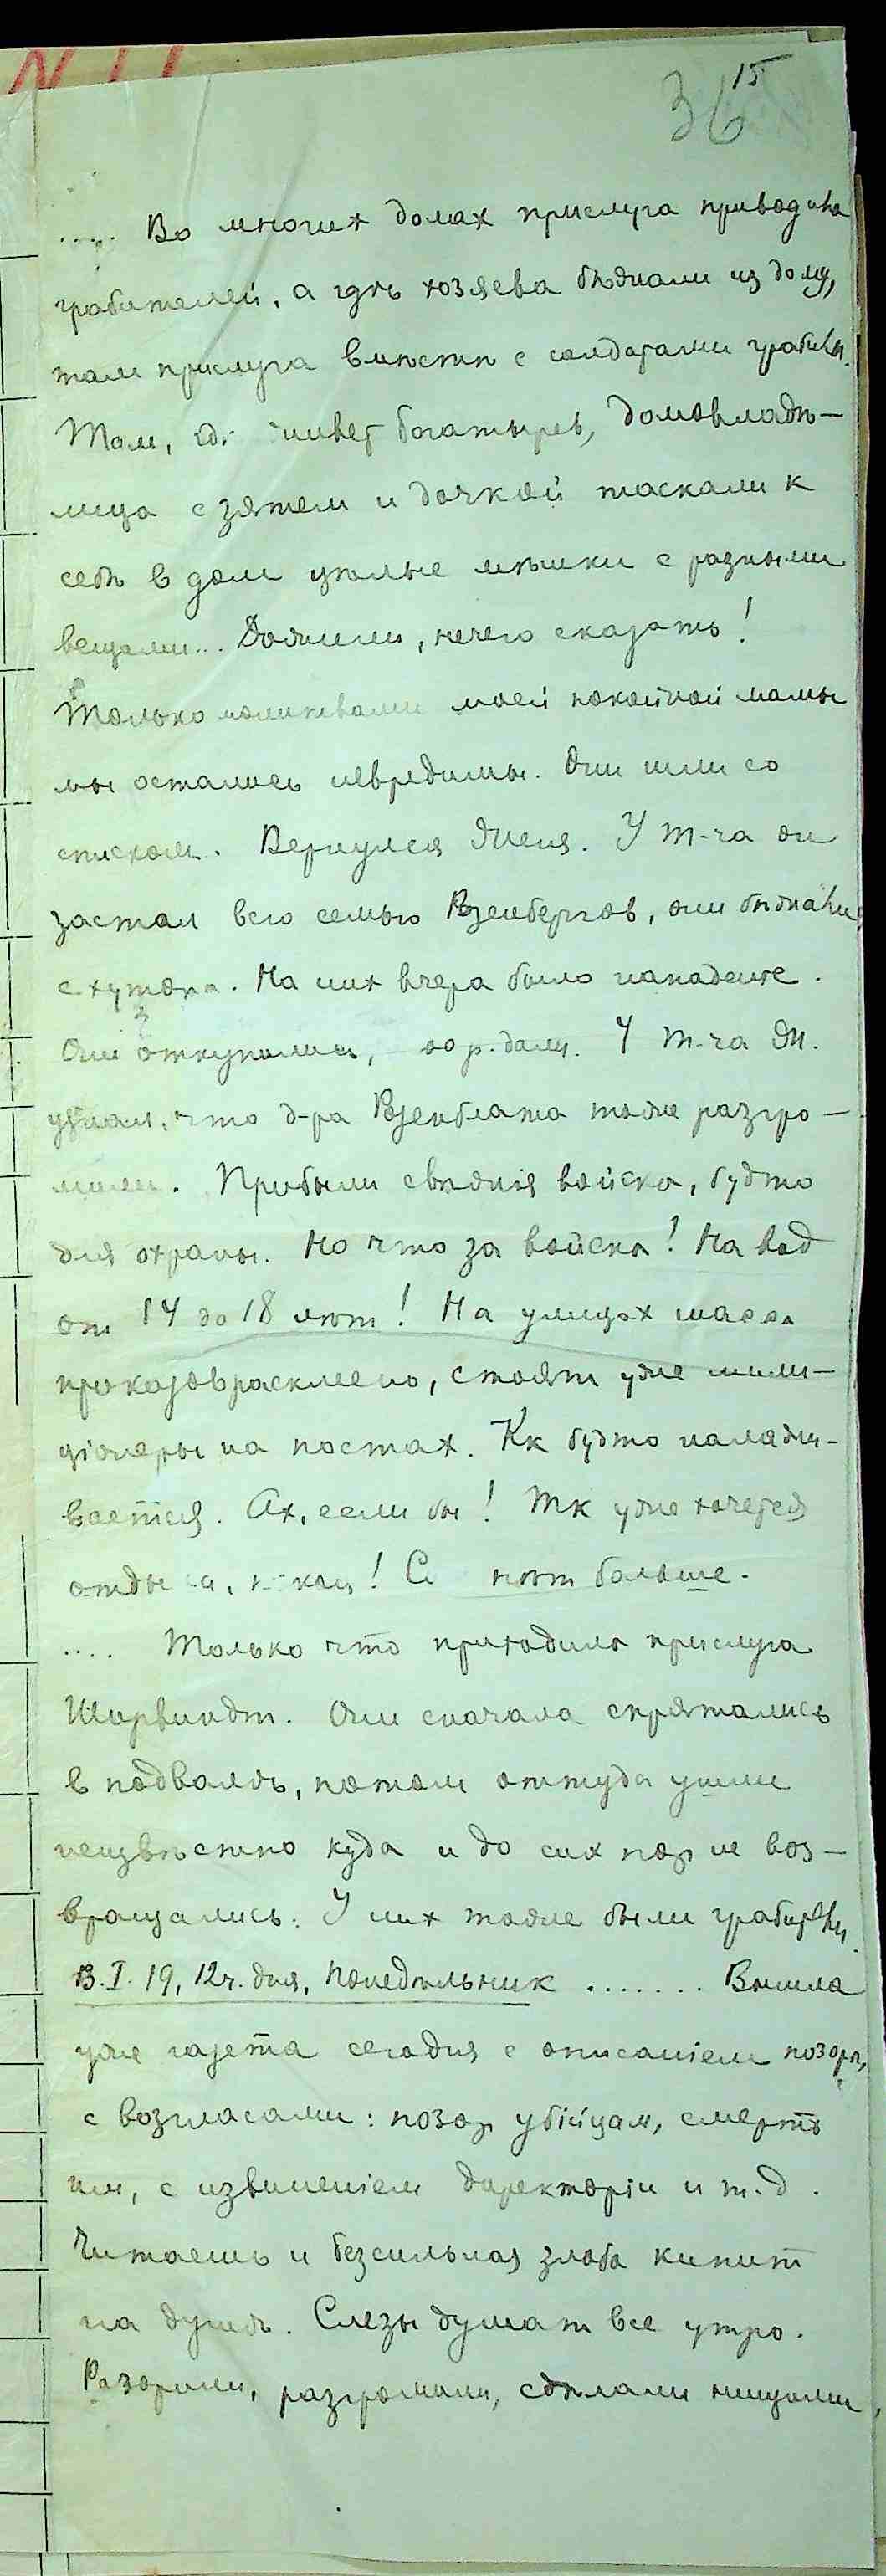 15
36
.... Во многих домах прислуга приводила
грабителей, а гдѣ хозяева бѣжали из дому,
там прислуга вмѣстѣ с солдатами грабила.
Там, гдѣ живет Богатырев, домовладѣ-
лица с зятем и дочкой таскали к
себѣ в дом цѣлые мѣшки с разными
вещами... Дожили, нечего сказать!
Только молитвами моей покойной мамы
мы остались невредимы. Они шли со
списком. Вернулся Женя. У Т-ча он
застал всю семью Розенбергов, они бѣжали
с хутора. На них вчера было нападение.
Они откупились, р. дали. У Т-ча Ж.
узнал, что д-ра Розенблата тоже разгро-
мили. Прибыли свѣжія войска, будто
для охраны. Но что за войска! На вид
от 14 до 18 лѣт! На улицах масса
приказов расклеено, стоят уже мили-
ціонеры на постах. Кк будто налажи-
вается. Ах, если бы! Тк уже хочется
отдыха, нѣт больше.
.... Только что приходила прислуга
Ширвиндт. Они сначала спрятались
в подвалѣ, потом оттуда ушли
неизвѣстно куда и до сих пор не воз-
вращались. У них тоже были грабители.
I. 19, 12 ч. дня, понедѣльник ....... Вышла
уже газета сегодня с описаніем позора,
с возгласами: позор убійцам, смерть
им, с извиненіем директоріи и т. д.
Читаешь и безсильная злоба кипит
на душѣ. Слезы душат все утро.
Разорили, разгромили, сдѣлали нищими,